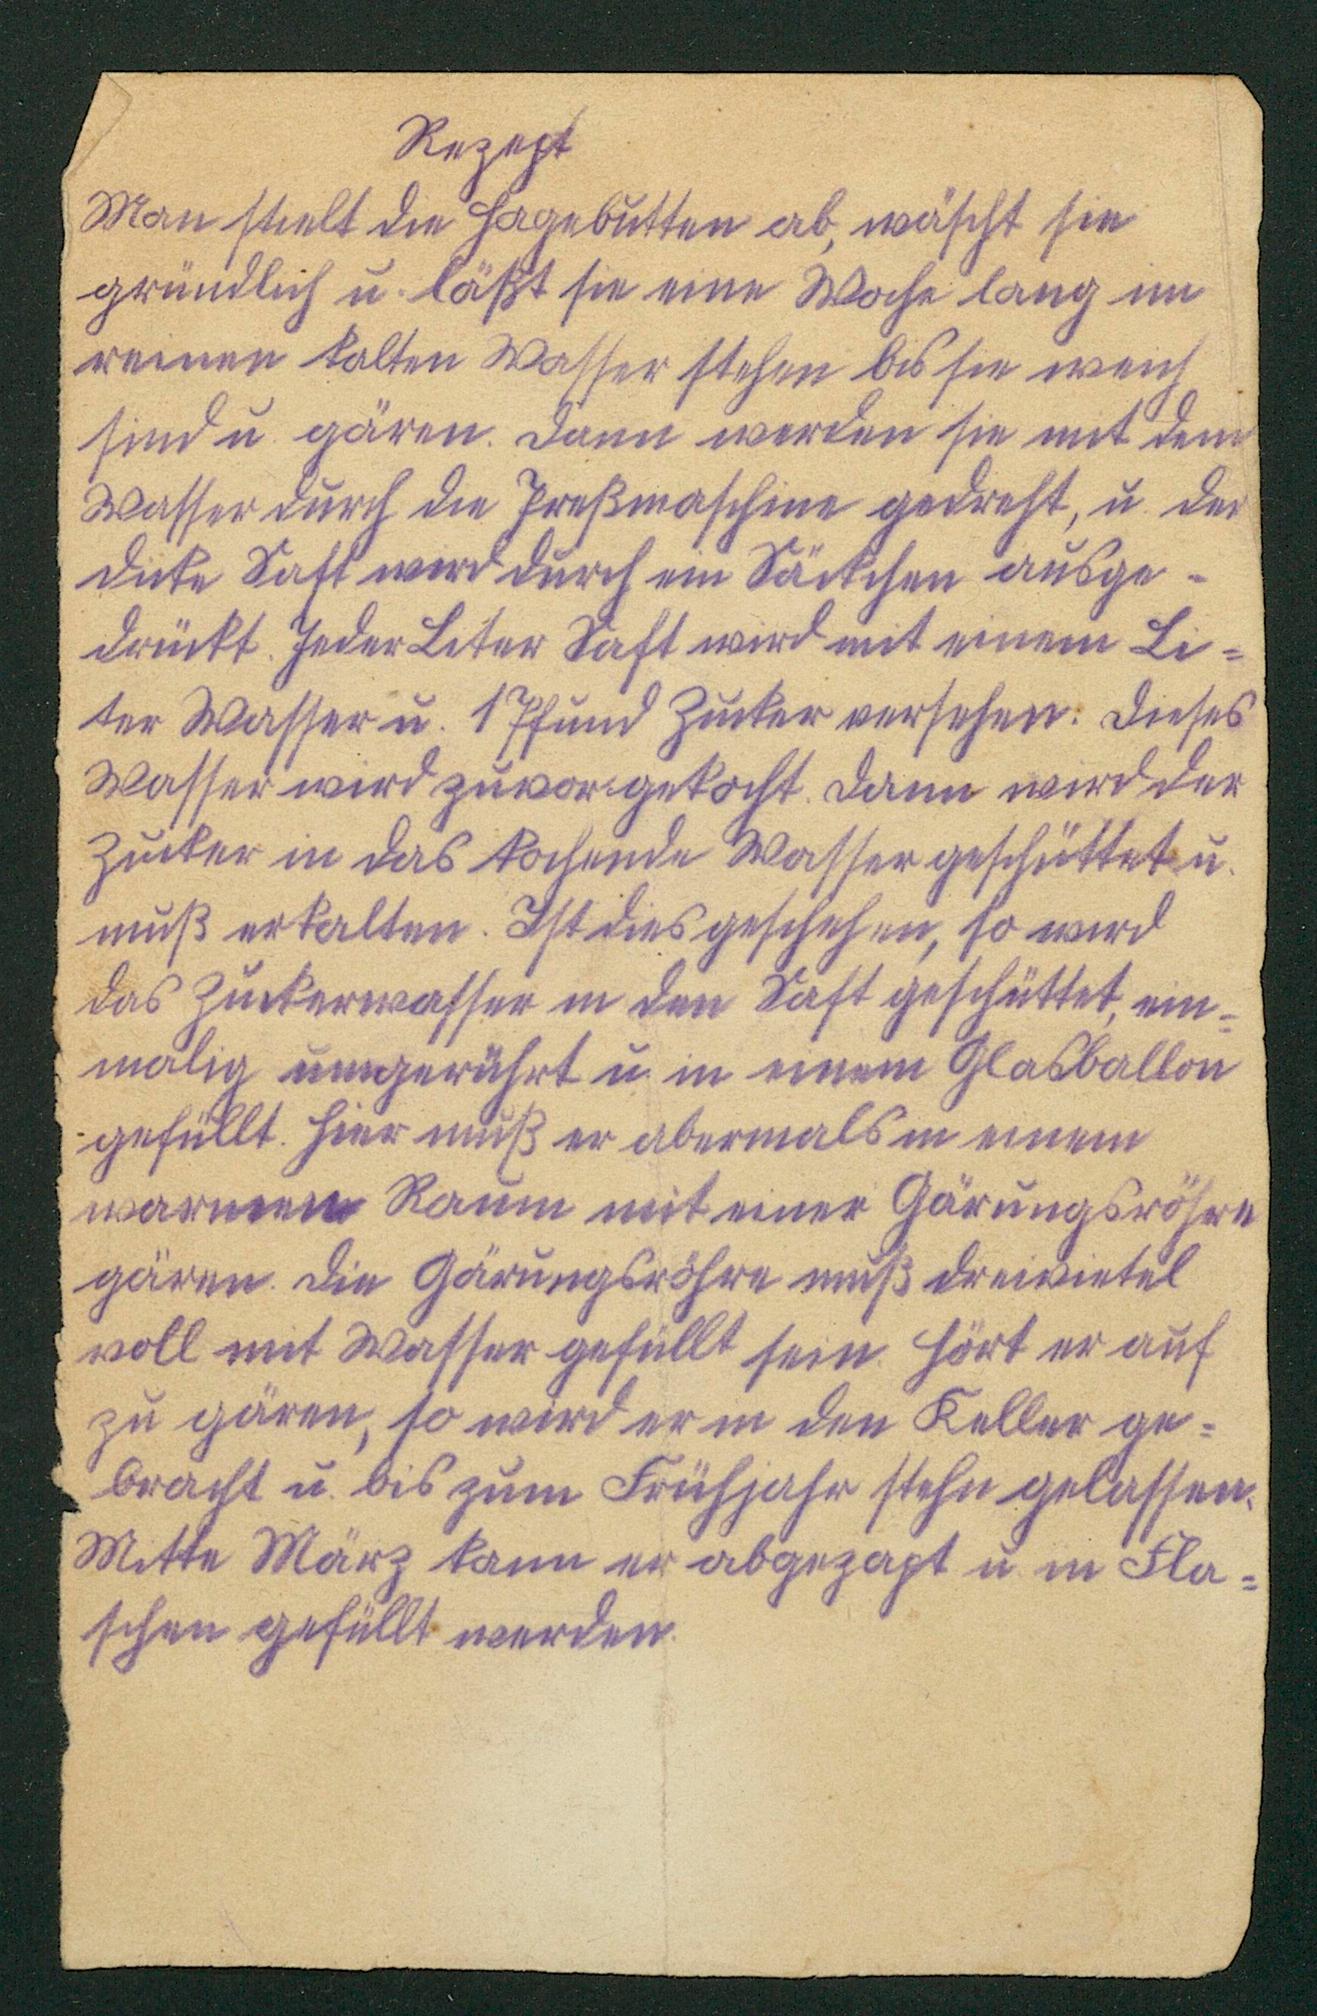 Rezept
Man stielt die Hagebutten ab, wäscht sie
gründlich u. läßt sie eine Woche lang im
reinen kalten Wasser stehen bis sie weich
sind u. gären. Dann werden sie mit dem
Wasser durch die Preßmaschine gedreht, u. der
dicke Saft wird durch ein Säckchen ausge-
drückt. Jeder Liter Saft wird mit einem Li=
ter Wasser u. 1 Pfund Zucker versehen. Dieses
Wasser wird zuvor gekocht. Dann wird der
Zucker in das kochende Wasser geschüttet u.
muß erkalten. Ist dies geschehen, so wird
das Zuckerwasser in den Saft geschüttet, ein=
malig umgerührt u. in einem Glasballon
gefüllt. Hier muß er abermals in einem
warmen Raum mit einer Gärungsröhre
gären. Die Gärungsröhre muß dreivietel
voll mit Wasser gefüllt sein. Hört er auf
zu gären, so wird er in den Keller ge=
bracht u. bis zum Frühjahr stehn gelassen.
Mitte März kann er abgezapt u. in Fla=
schen gefüllt werden.